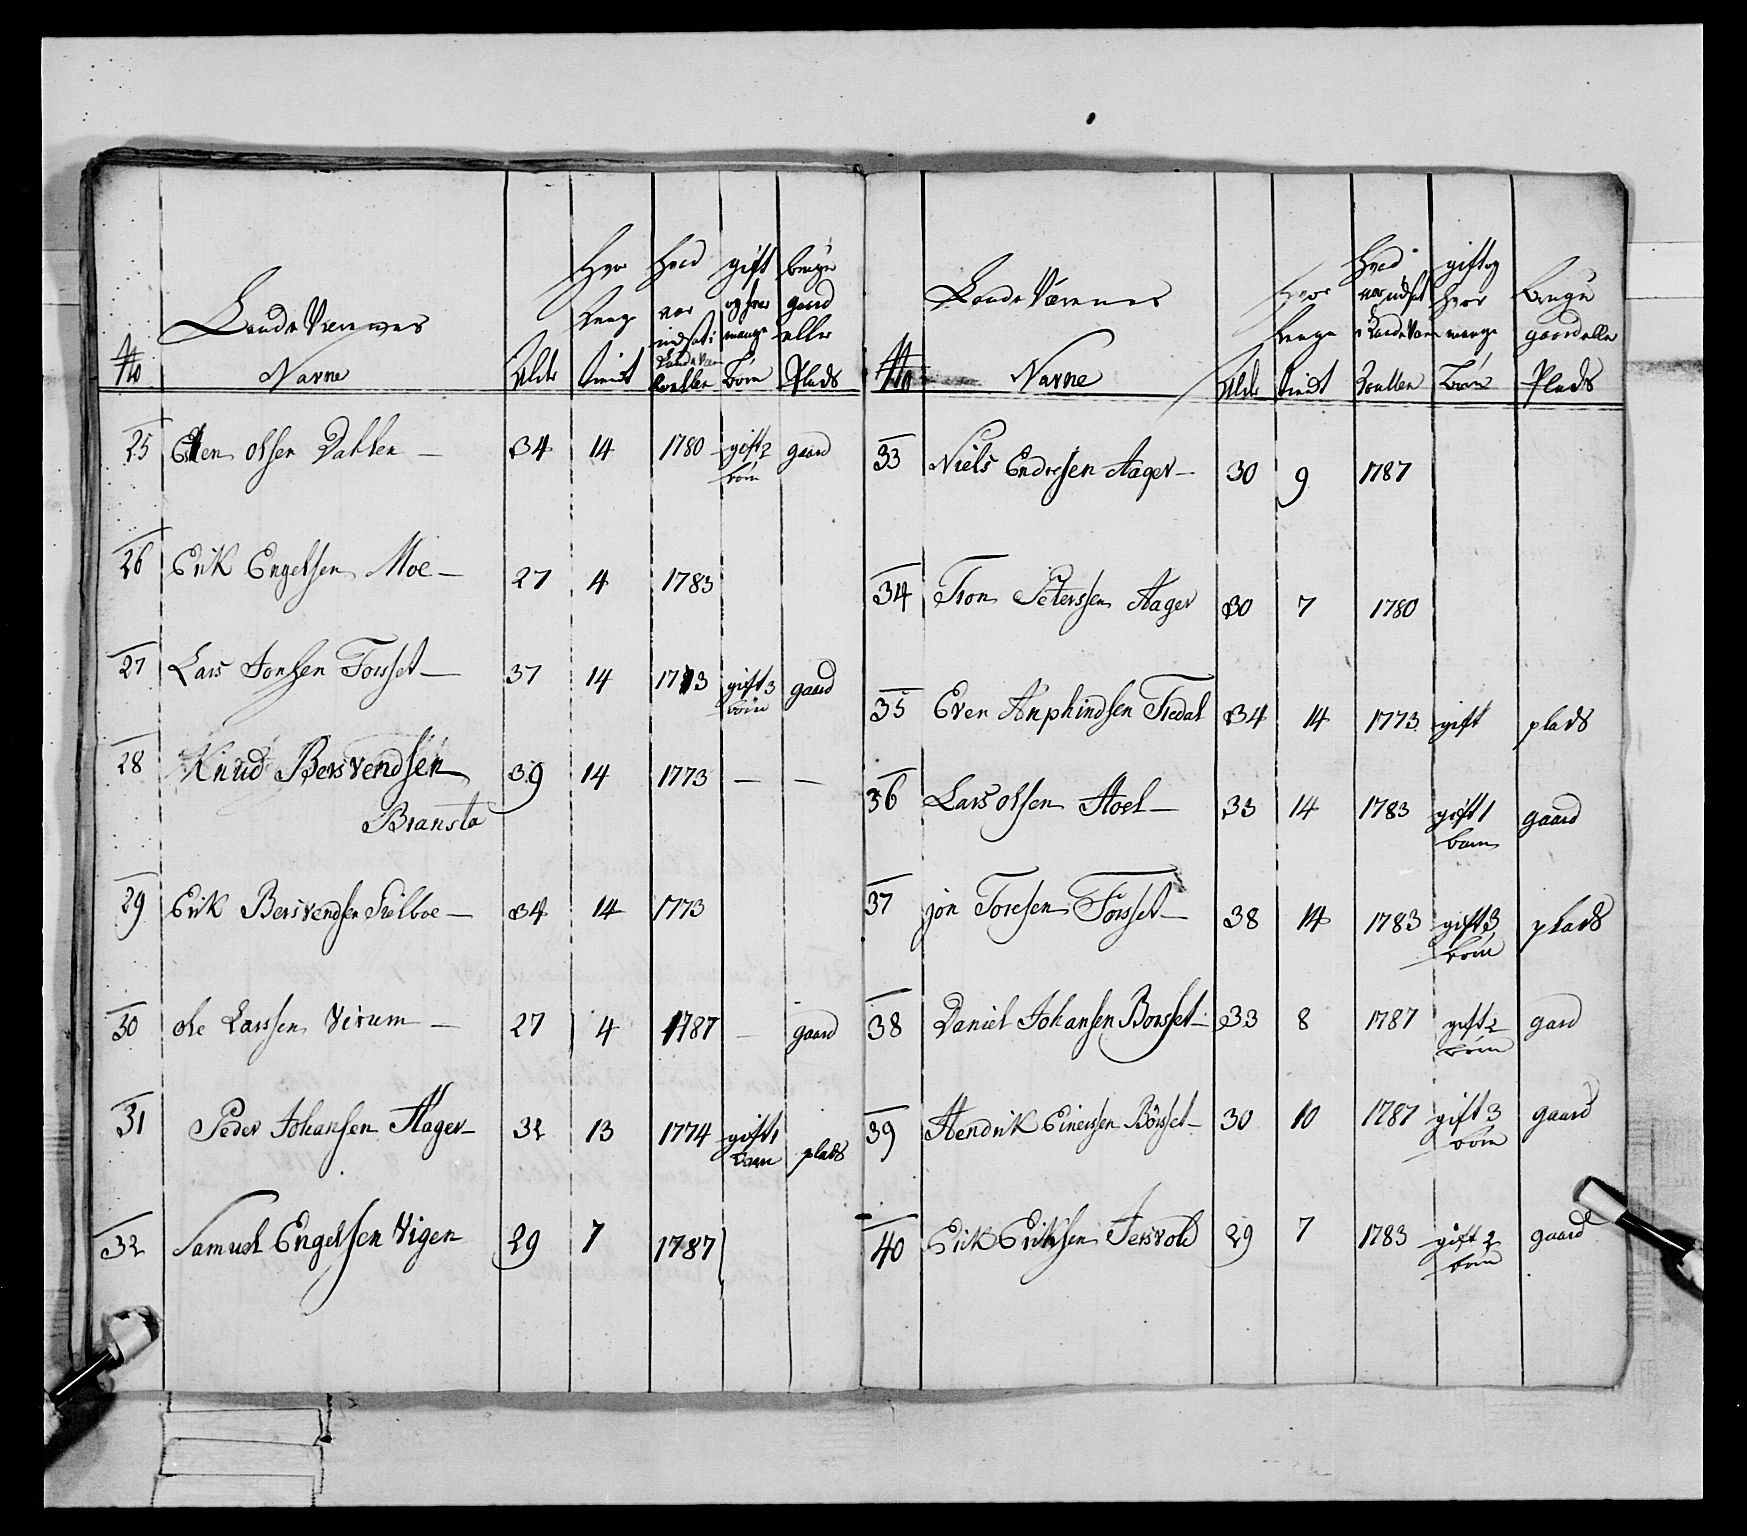 Lande Værnes
No Navne Alder Hvor Længe tient Hvad aar indsat i Lande Værn Roullen gift og hvor mange Børn bruger gaard eller Plads
25 Elen Olsen Dahlen — 34 14 1780 gift 2 gaard
børn
26 Erik Engelsen Moe — 27 4 1783
27 Lars Jonsen Forsset — 37 14 1773 gift 3 gaard
børn
28 Knud Bersvendsen 39 14 1773 — —
Bransta
29 Erik Bersvendsen Sielboe — 34 14 1773
30 Ole Larssen Virum — 27 4 1787 — gaard
31 Peder Johansen Hager — 32 13 1774 gift 1
barn plads
32 Samuel Engelsen Vigen 29 7 1787
Lande Værnes
No Navne Alder Hvor Længe tient Hvad aar indsat i Lande Værn Roullen gift og hvor mange Børn Bruger gaard eller Plads
33 Niels Endresen Hager — 30 9 1787
34 Tron Peterssen Hager 30 7 1780
35 Even Anphindsen Tredal 34 14 1773 gift plads
36 Lars Olsen Hoel — 33 14 1783 gift 1 gaard
barn
37 jon Toresen Forsset — 38 14 1783 gift 3 plads
børn
38 Daniel Johansen Borsset — 33 8 1787 gift 2 gard
børn
39 Hendrik Einersen Børset — 30 10 1787 gift 3 gaard
børn
40 Erik Eriksen Jersvold 29 7 1783 gift 2 gaard
børn